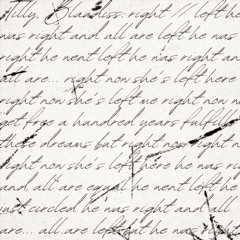 right // left he
was right and all are left he was
right he went left he was right and
all are... right now she's left here
right now she's left me right now
get free a hundred years
these dreams but right now right now
right now she's left here he was right
and all are equal he went left he
just circled he was right and all
are... all are left he was right